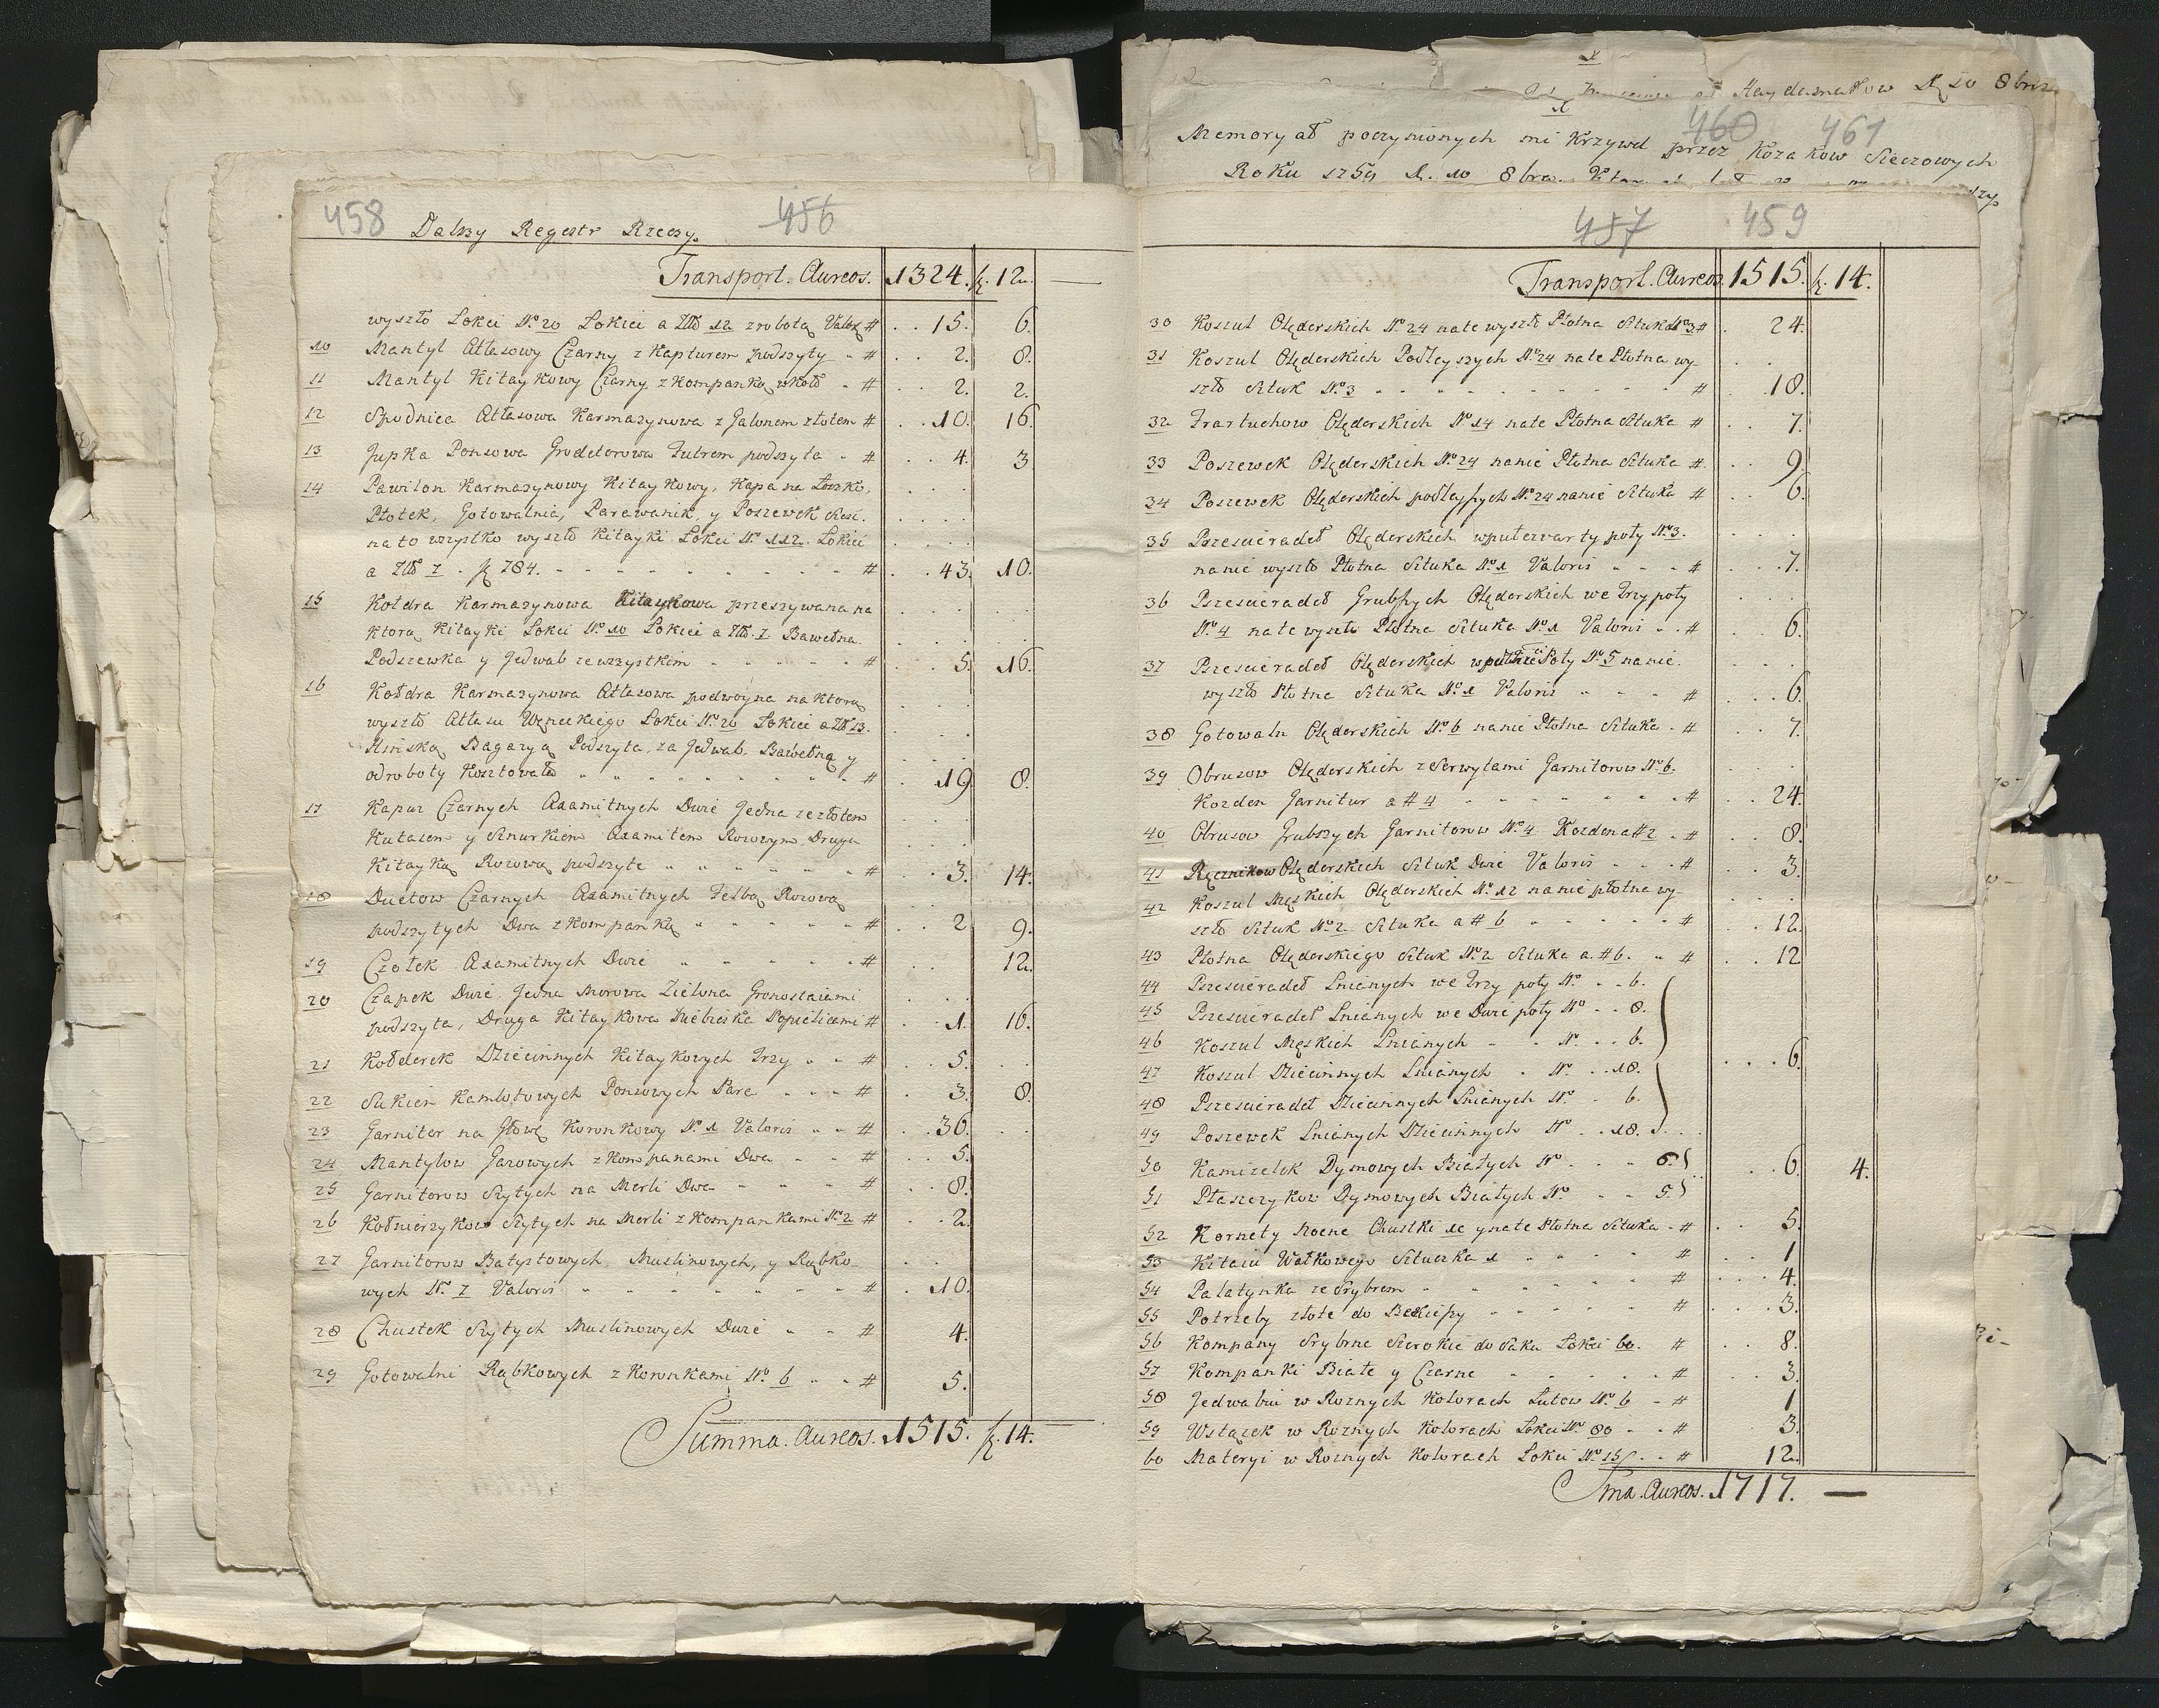 458 Dalszy Regestr Rzeczy. 456
Transport. Aureos. 1324. f. 12.
wyszło Łokci No 20 Łokieć a Złł 12 z robotą Valor # 15. 6.
10 Mantyl Atłasowy Czarny z Kapturem podszyty # 2. 8.
11 Mantyl Kitaykowy Czarny z Kompanką wkoło # 2. 2.
12 Spodnica Atłasowa Karmazynowa z Galonem złotem # 10. 16.
13 Jupka Ponsowa Grodetorowa Futrem podszyta # 4. 3
14 Pawilon Karmazynowy Kitaykowy, Kapa na Łoszko,
Płotek, Gotowalnia, Parawanik, y Poszewek
na to wszystko wyszło Kitayki Łokci No 112. Łokieć
a Złł 7. f 784. # 43. 10.
15 Kołdra Karmazynowa Kitaykowa przeszywana na
ktorą Kitayki Łokci No 10 Łokieć a Złł. 7 Bawełna
Podszewka y Jedwab ze wszystkim # 5. 16.
16 Kołdra Karmazynowa Atłasowa podwoyna na ktorą
wyszło Atłasu Weneckiego Łokci No 20 Łokieć a Złł 13.
Bagazyą Podszyta, za Jedwab, Bawełnę y
od roboty Kosztowało # 19 8.
17 Kapuz Czarnych Axamitnych Dwie Jedna ze złotem
Kutasem y Sznurkiem Axamitem Rozowym, Druga
Kitayką Rozową podszyte # 3. 14.
18 Duetow Czarnych Axamitnych Felbą Rozową
podszytych Dwa z Kompanką # 2 9.
19 Czołek Axamitnych Dwie # 12.
20 Czapek Dwie, Jedna Morowa Zielona Gronostaiami
podszyta, Druga Kitaykowa Niebieska Popielicami # 1. 16.
21 Kołderek Dziecinnych Kitaykowych Trzy # 5.
22 Sukien Kamlotowych Ponsowych Para # 3. 8.
23 Garnitor na Głowę Koronkowy No 1 Valoris # 36.
24 Mantylow Gazowych z Kompanami Dwa # 5.
25 Garnitorow Szytych na Merli Dwa # 8.
26 Kołnierzykow Szytych na Merli z Kompankami No 2 # 2.
27 Garnitorow Batystowych, Muslinowych, y Rąbko-
wych No. 7 Valoris # 10.
28 Chustek Szytych Muslinowych Dwie # 4.
29 Gotowalni Rąbkowych z Koronkami No. 6 # 5.
Summa. Aureos. 1515. f. 14.
Haydamakow D 10 8bris
460 461
Memoryał poczynionych mi Krzywd przez Kozakow Sieczowych
Roku 1759 D. 10 8bra.
457 459
Transport. Aureos. 1515. f. 14.
30 Koszul Olęderskich No 24 na te wyszło Płotna Sztuk No 3 # 24.
31 Koszul Olęderskich Podleyszych No 24 na te Płotna wy-
szło Sztuk No 3 # 18.
32 Fartuchow Olęderskich No 14 na te Płotna Sztuka # 7.
33 Poszewek Olęderskich No 24 na nie Płotna Sztuka # 9.
34 Poszewek Olęderskich podleyszych No 24 na nie Sztuka # 6.
35 Przescieradeł Olęderskich w puł czwarty poły No 3.
na nie wyszło Płotna Sztuka No 1 Valoris # 7.
36 Przescieradeł Grubszych Olęderskich we Trzy poły
No 4 na te wyszło Płotna Sztuka No 1 Valoris # 6.
37 Przescieradeł Olęderskich w Poły No 5 na nie
wyszło Płotna Sztuka No 1 Valoris # 6.
38 Gotowaln Olęderskich No 6 na nie Płotna Sztuka # 7.
39 Obrusow Olęderskich z Serwytami Garnitorow No 6.
Kozden Garnitur a # 4 # 24.
40 Obrusow Grubszych Garnitorow No 4 Kozden a # 2 # 8.
41 Ręcznikow Olęderskich Sztuk Dwie Valoris # 3.
42 Koszul Męskich Olęderskich No 12 na nie płotna wy-
szło Sztuk No 2 Sztuka a # 6 # 12.
43 Płotna Olęderskiego Sztuk No 2 Sztuka a. # 6. # 12
44 Przescieradeł Lnianych we Trzy poły No 6.
45 Przescieradeł Lnianych we Dwie poły No 8.
46 Koszul Męskich Lnianych No 6.
47 Koszul Dziecinnych Lnianych No 18. 6.
48 Przescieradeł Dziecinnych Lnianych No 6.
49 Poszewek Lnianych Dziecinnych No 18.
50 Kamizelek Dymowych Białych No 6. 6. 4.
51 Płaszczykow Dymowych Białych No 5.
52 Kornety Nocne Chustki y na te Płotna Sztuka # 5.
53 Kitaiu Wałkowego Sztuczka 1 # 1
54 Palatynka ze Srybrem # 4.
55 Potrzeby złote do Bekieszy # 3.
56 Kompany Srybrne Szerokie do Saku Łokci 60. # 8.
57 Kompanki Białe y Czarne # 3.
58 Jedwabiu w Roznych Kolorach Łutow No 6 # 1
59 Wstążek w Roznych Kolorach Łokci No 80 # 3.
60 Materyi w Roznych Kolorach Łokci No 15 # 12.
Sma. Aureos. 1717. —